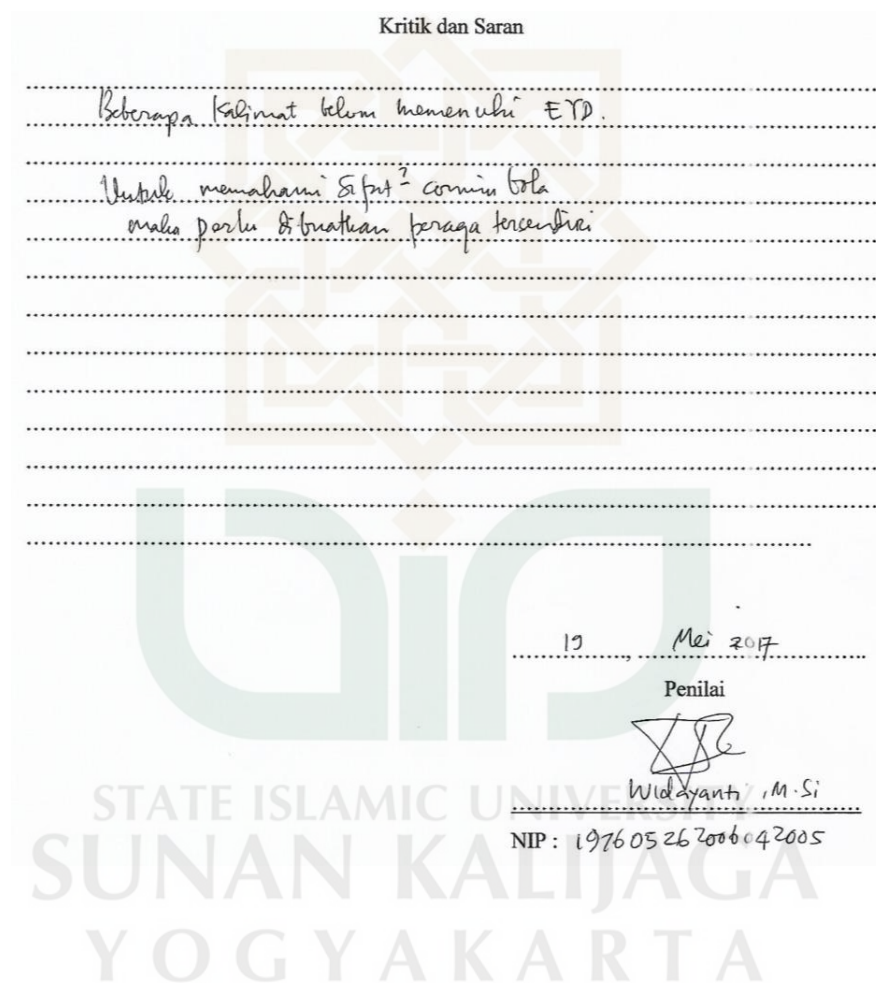 Kritik dan Saran
Beberapa Kalimat belum memenuhi EYD.
Untuk memahami Sifat² cermin bola
maka perlu dibuatkan peraga tersendiri
19, Mei 2017
Penilai
Widayanti, M.Si
NIP : 197605262006042005
STATE ISLAMIC UNIVERSITY
SUNAN KALIJAGA
YOGYAKARTA